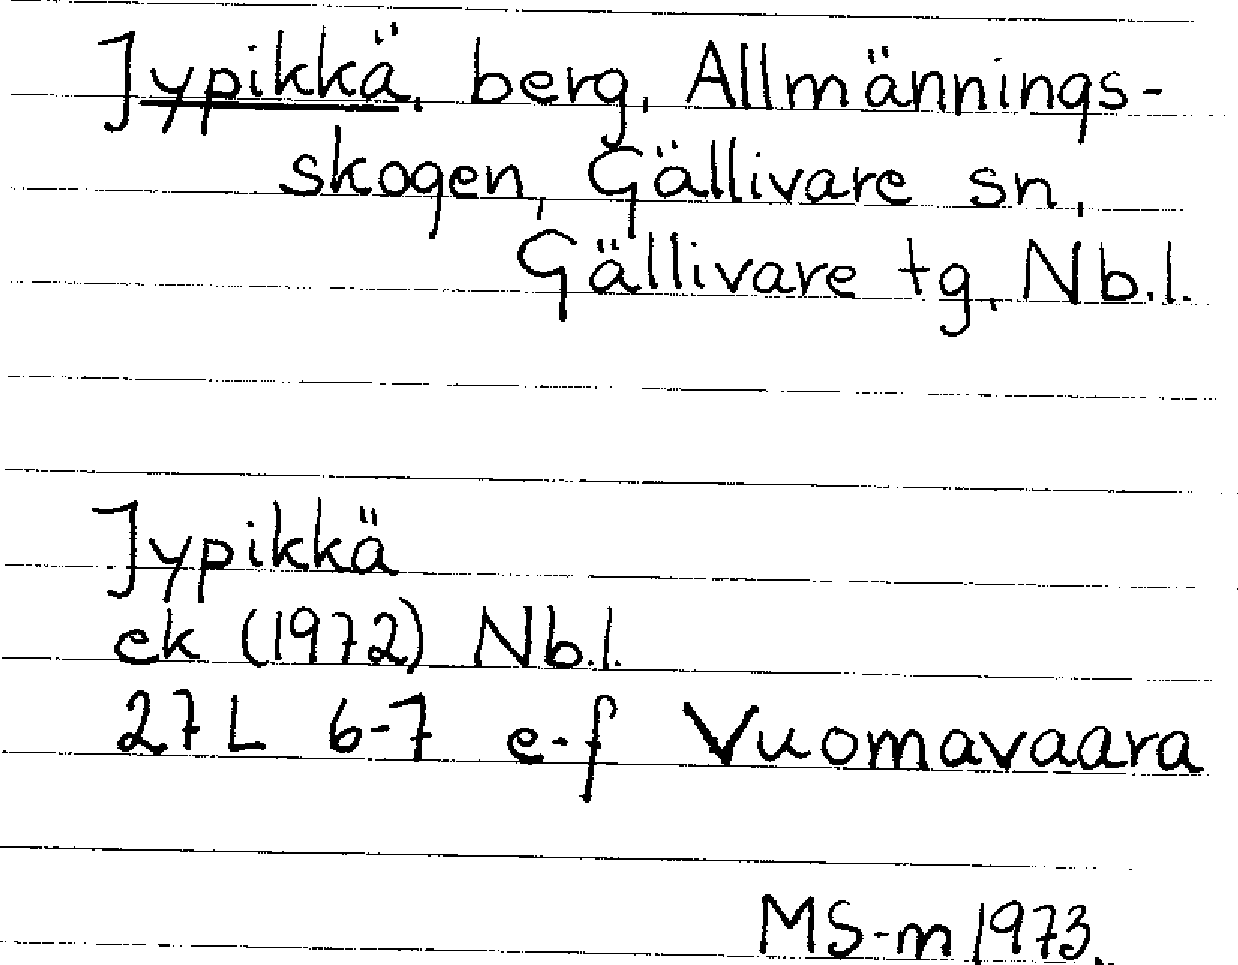 Jypikkä, berg, Allmännings-
skogen, Gällivare sn,
Gällivare tg, Nb.l.
Jypikkä
ek (1972) Nb.l.
27L 6-7 e-f Vuomavaara
MS-m 1973.